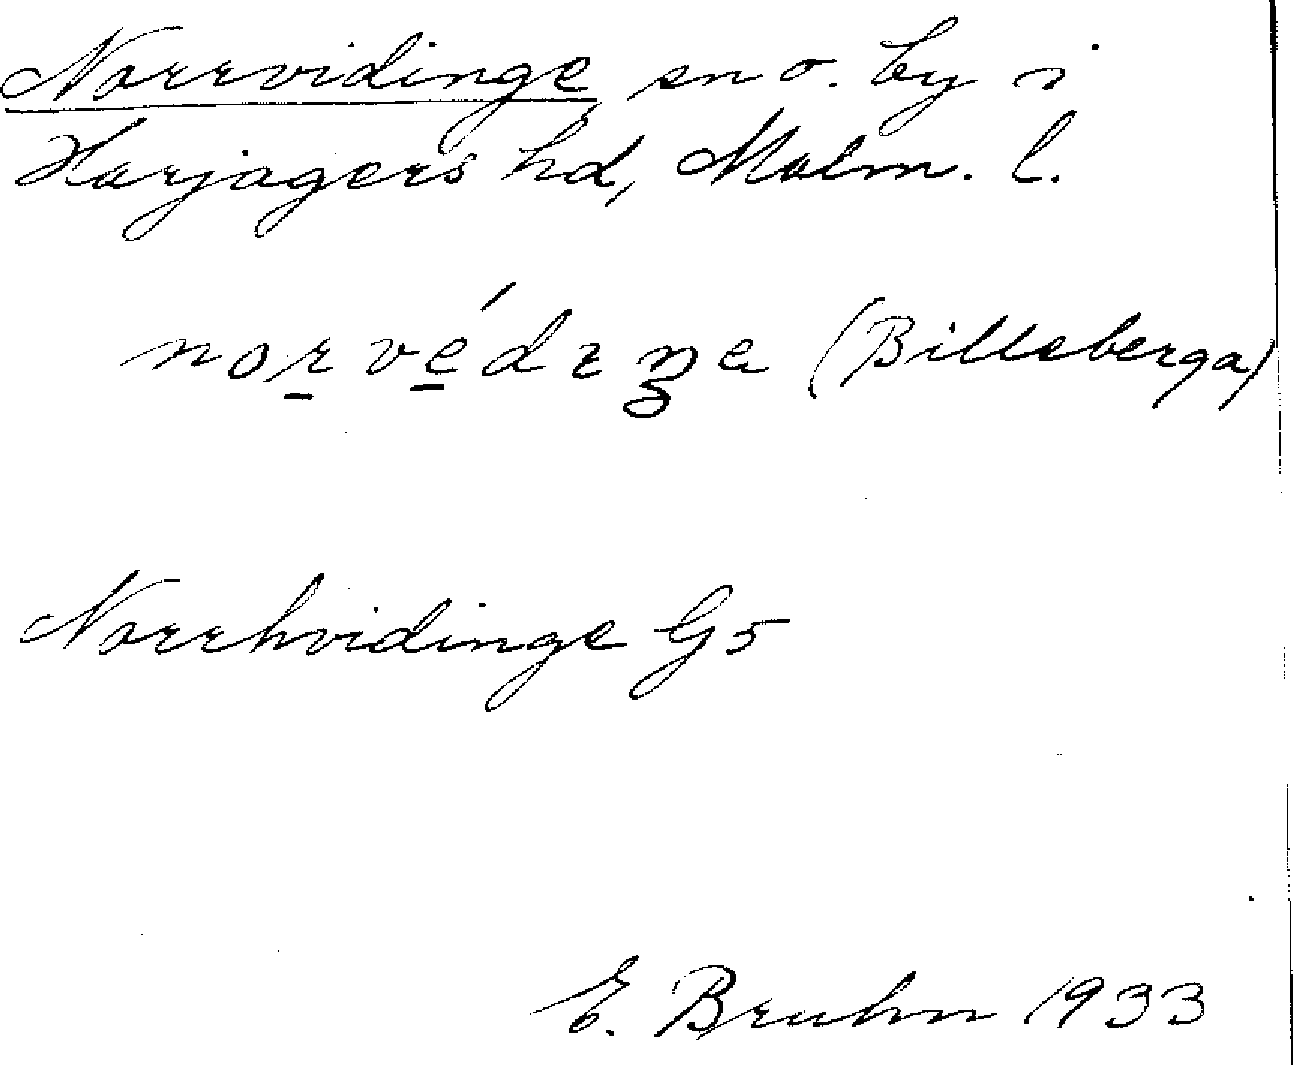 Norrvidinge sn o. by i
Harjagers hd, Malm. l.
norvédɪŋe (Billeberga)
Norrhvidinge G5
E. Bruhn 1933